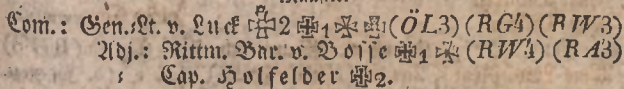 Com.: Gen.Lt. v. Luck ✠2 ✠1 ✠ ✠ (ÖL3) (RG4) (RW3)
Adj.: Rittm. Bar. v. Bosse ✠1 ✠ (RW4) (RA3)
: Cap. Holfelder ✠2.